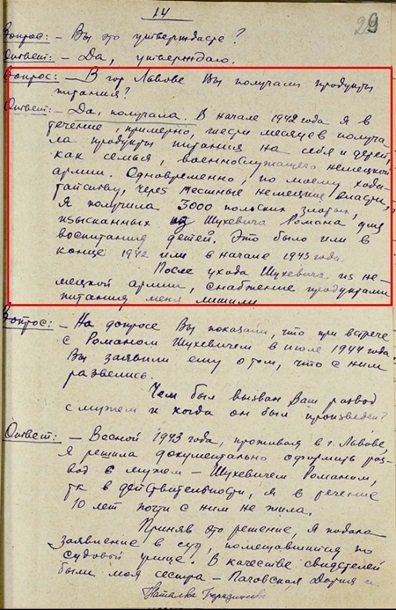 14
29
Вопрос: – Вы это утверждаете?
Ответ: – Да, утверждаю.
Вопрос: – В гор. Львове Вы получали продукты
питания?
Ответ: – Да, получала. В начале 1942 года я в
течение, примерно, шести месяцев получа
ла продукты питания на себя и детей,
как семья, военнослужащего немецкой
армии. Одновременно, по моему хода-
тайству, через местные немецкие власти,
я получила 3000 польских злотых,
взысканных из Шухевича Романа, для
воспитания детей. Это было или в
конце 1942 или в начале 1943 года.
После ухода Шухевича из не-
мецкой армии, снабжение продуктами
питания меня лишили.
Вопрос: – На допросе Вы показали, что при встрече
с Романом Шухевичем в июле 1944 года
Вы заявили ему о том, что с ним
развелись.
Чем был вызван Ваш развод
с мужем и когда он был произведен?
Ответ: – Весной 1943 года, проживая в г. Львове,
я решила документально оформить раз-
вод с мужем – Шухевичем Романом,
тк в действительности, я в течение
10 лет почти с ним не жила.
Приняв это решение, я подала
заявление в суд, помещавшийся по
судовой улице. В качестве свидетелей
были моя сестра – Паговская Дария и
Наталья Березинская